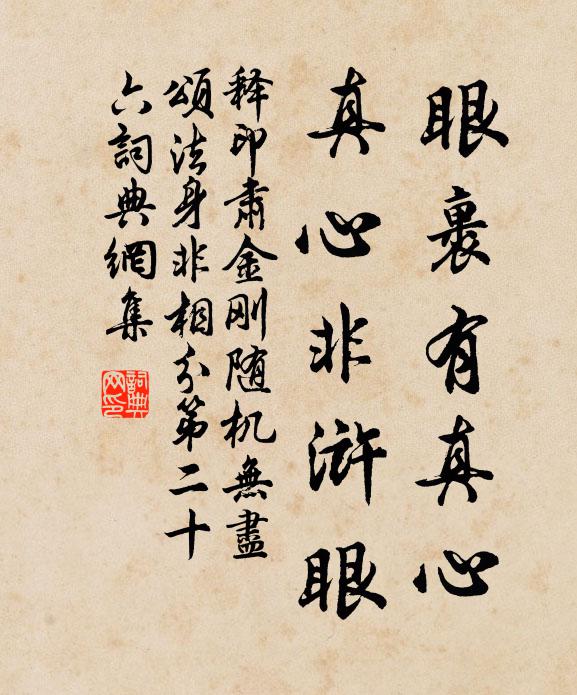 眼裹有真心
真心非滸眼
释印肅金刚随机無盡
頌法身非相分第二十
六詞典網集
詞典
网印